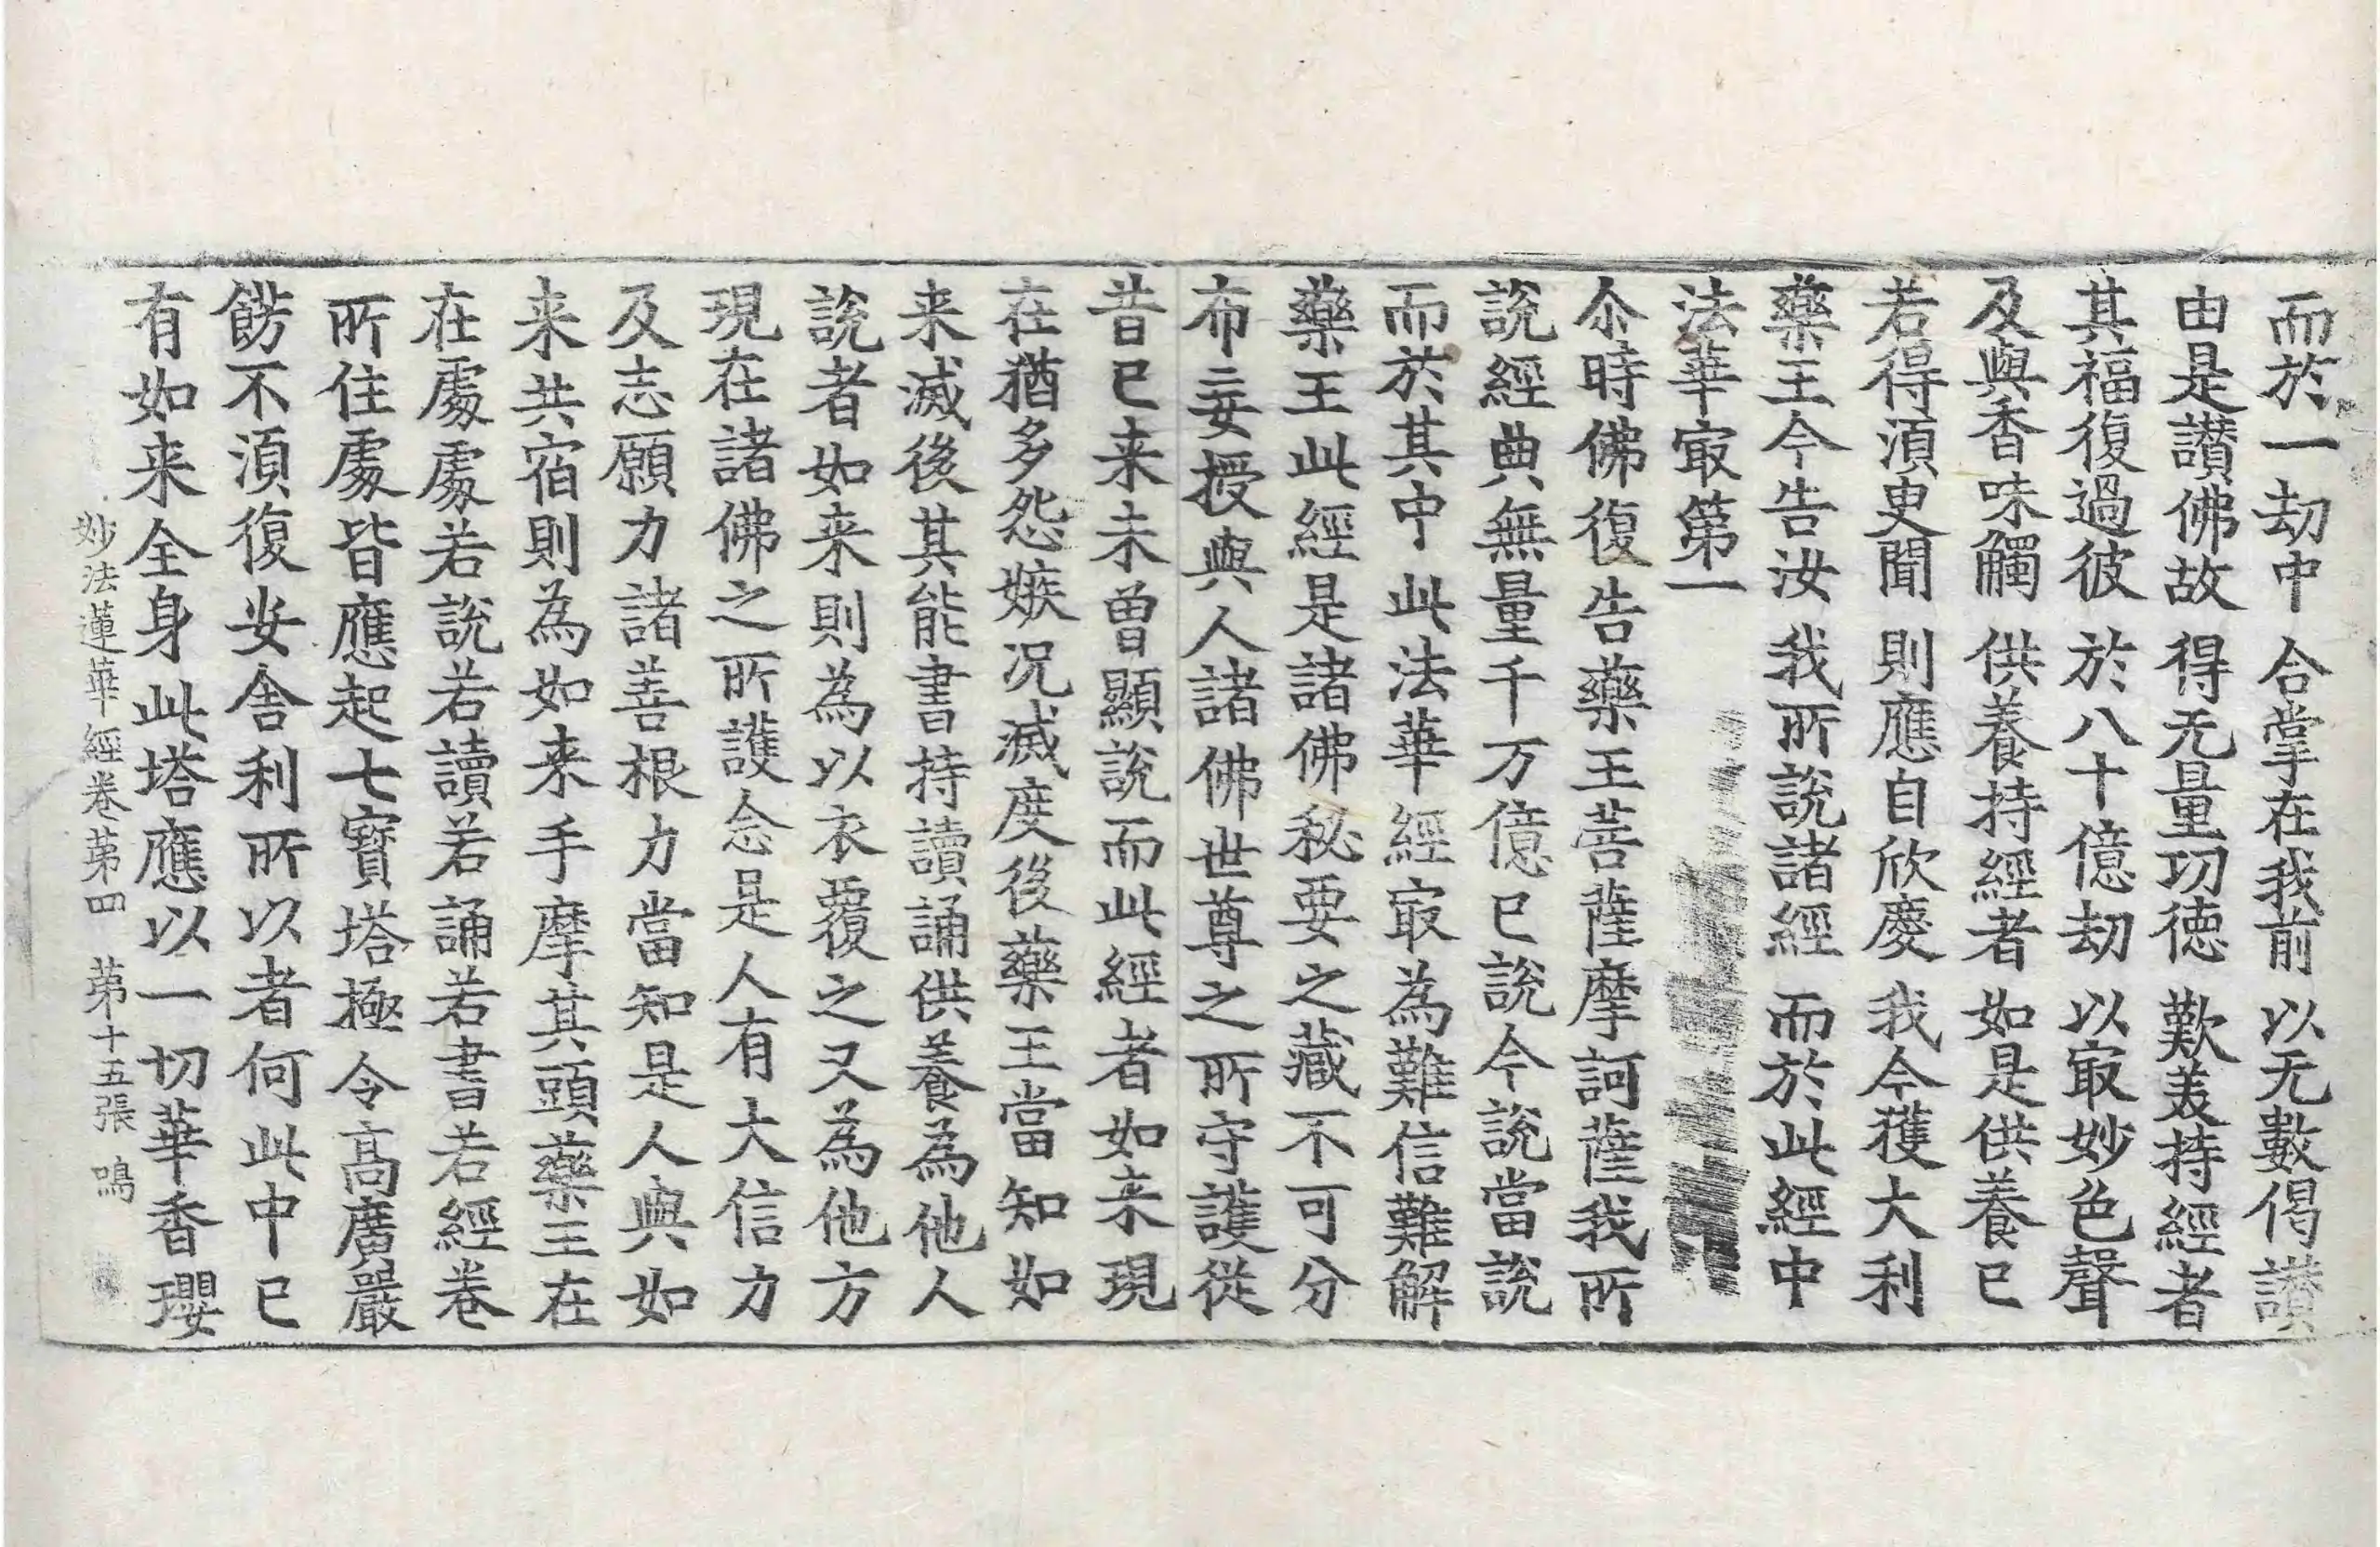 而於一劫中 合掌在我前 以无數偈讃
由是讃佛故 得无量功徳 歎美持經者
其福復過彼 於八十億劫 以㝡妙色聲
及與香味觸 供養持經者 如是供養已
若得湏臾聞 則應自欣慶 我今獲大利
藥王今告汝 我所說諸經 而於此經中
法華㝡第一
尒時佛復告藥王菩薩摩訶薩我所
說經典無量千万億已說今說當說
而於其中此法華經㝡為難信難解
藥王此經是諸佛秘要之藏不可分
布妄授與人諸佛世尊之所守護從
昔已来未曽顯說而此經者如来現
在猶多怨嫉况滅度後藥王當知如
来滅後其能書持讀誦供養為他人
說者如来則為以衣覆之又為他方
現在諸佛之所護念是人有大信力
及志願力諸善根力當知是人與如
来共宿則為如来手摩其頭藥王在
在處處若說若讀若誦若書若經卷
所住處皆應起七寶塔極令高廣嚴
餝不湏復安舍利所以者何此中已
有如来全身此塔應以一切華香瓔
妙法蓮華經卷苐四 苐十五張 鳴